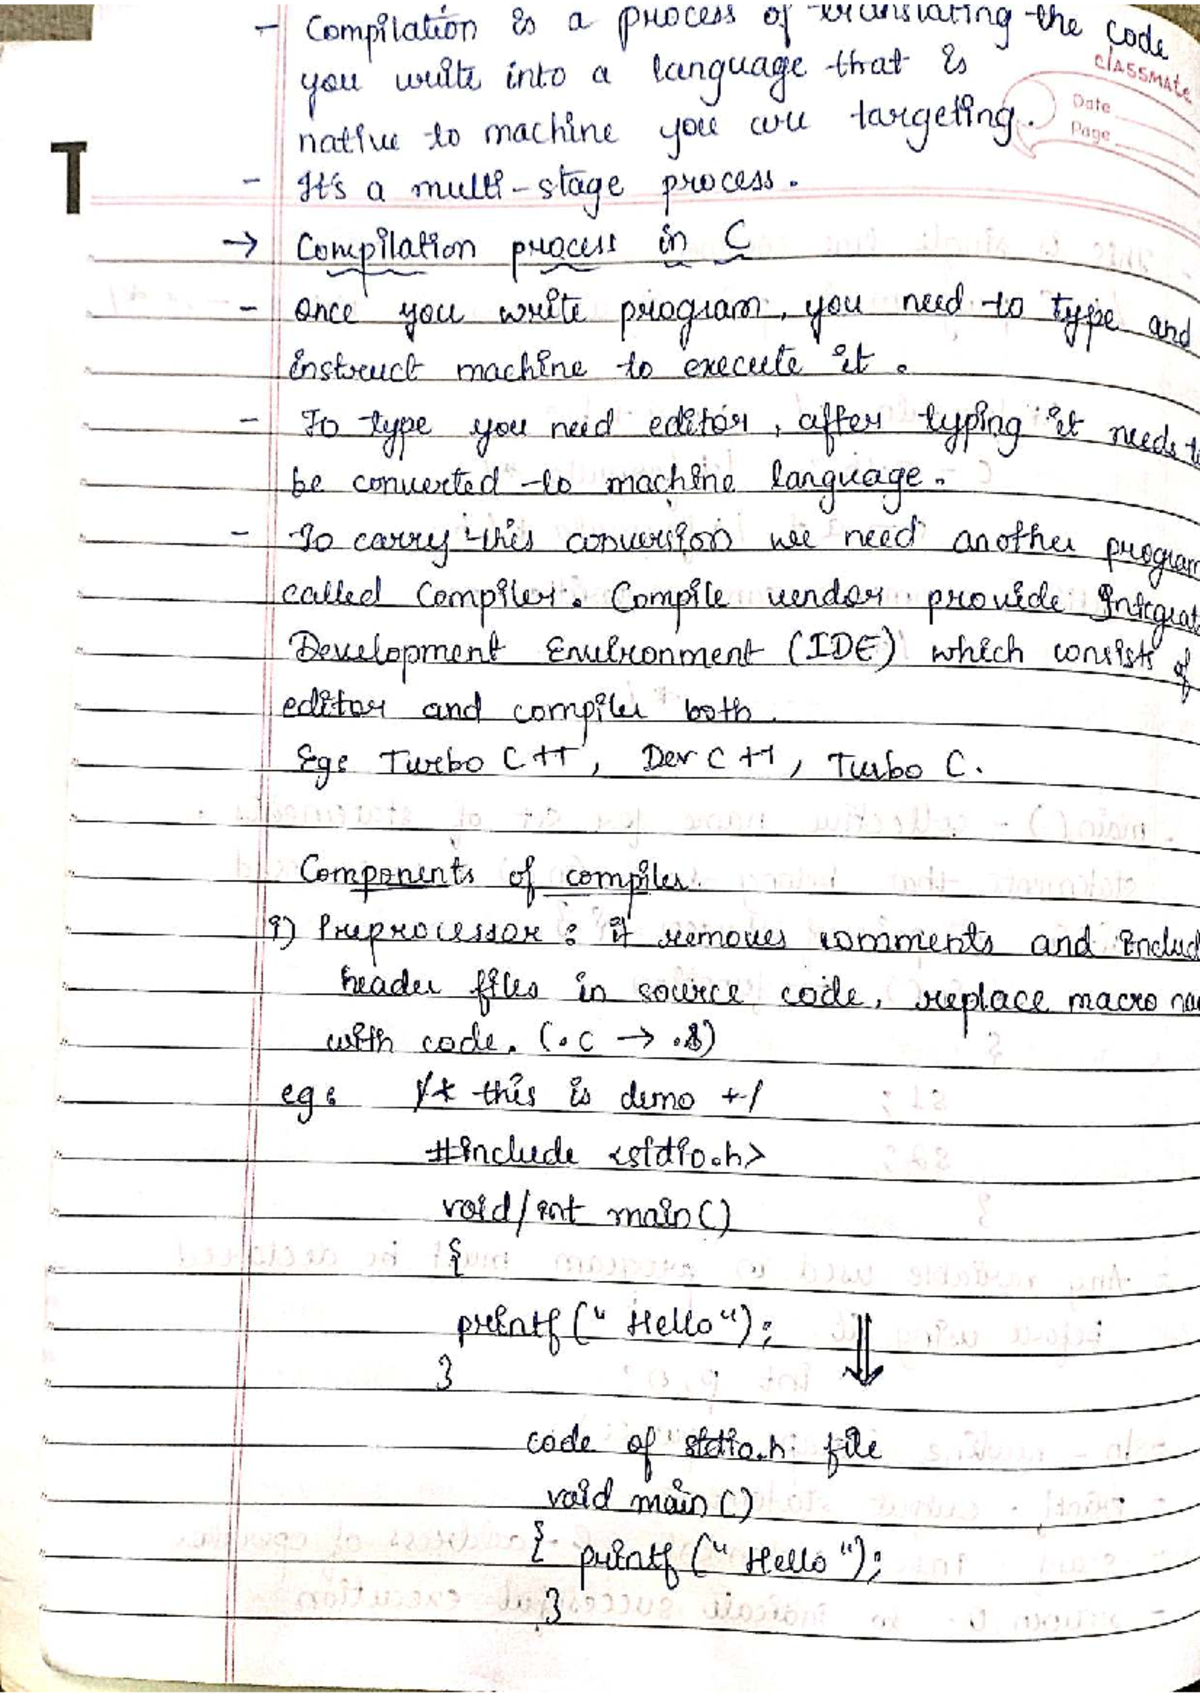 - Compilation is a process of translating the code
you write into a language that is
classmate
Date
Page
native to machine you are targeting.
- It's a multi-stage process.
T
→ Compilation process in C
- Once you write program, you need to type and
instruct machine to execute it.
- To type you need editor, after typing it needs to
be converted to machine language.
- To carry this conversion we need another program
called Compiler. Compile vendor provide Integrat
Development Environment (IDE) which consists of
editor and compiler both.
Eg: Turbo C++, Dev C++, Turbo C.
Components of compiler.
i) Preprocessor : it removes comments and includ
header files in source code, replace macro na
with code. (.c → .i)
eg: /* this is demo */
#include <stdio.h>
void/int main()
{
printf("Hello");
}
⇓
code of stdio.h file
void main()
{ printf("Hello");
}